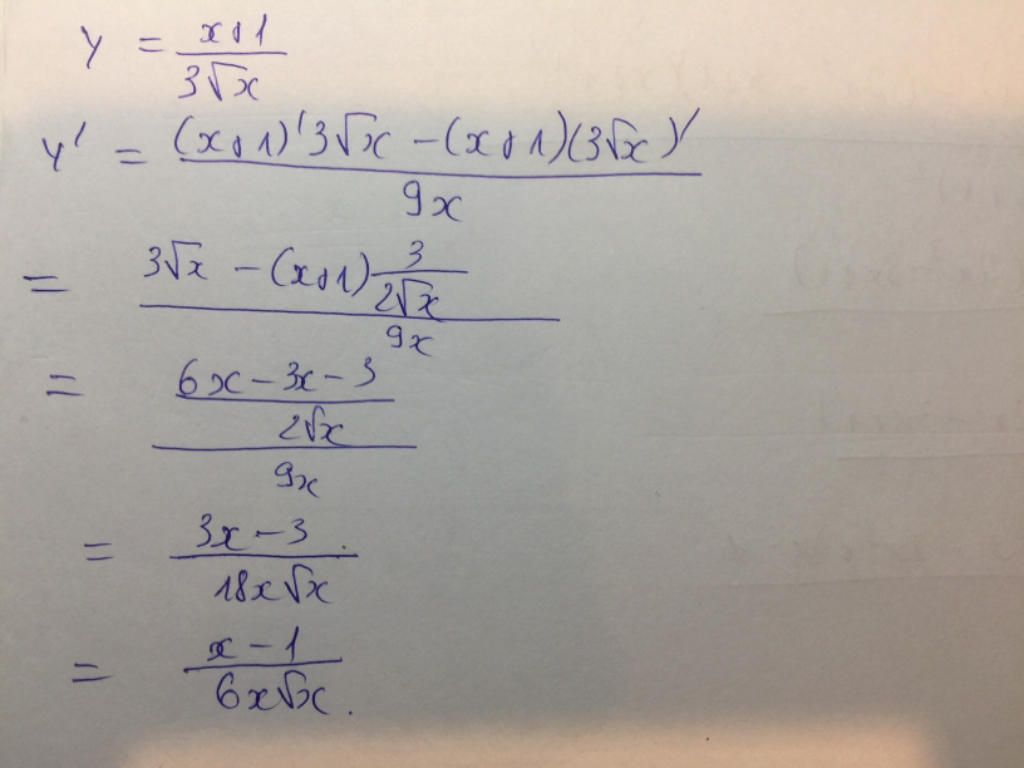 y = (x+1)/(3√x)
y' = ((x+1)'3√x − (x+1)(3√x)')/(9x)
= (3√x − (x+1) 3/(2√x))/(9x)
= ((6x − 3x − 3)/(2√x))/(9x)
= (3x − 3)/(18x√x)
= (x − 1)/(6x√x).